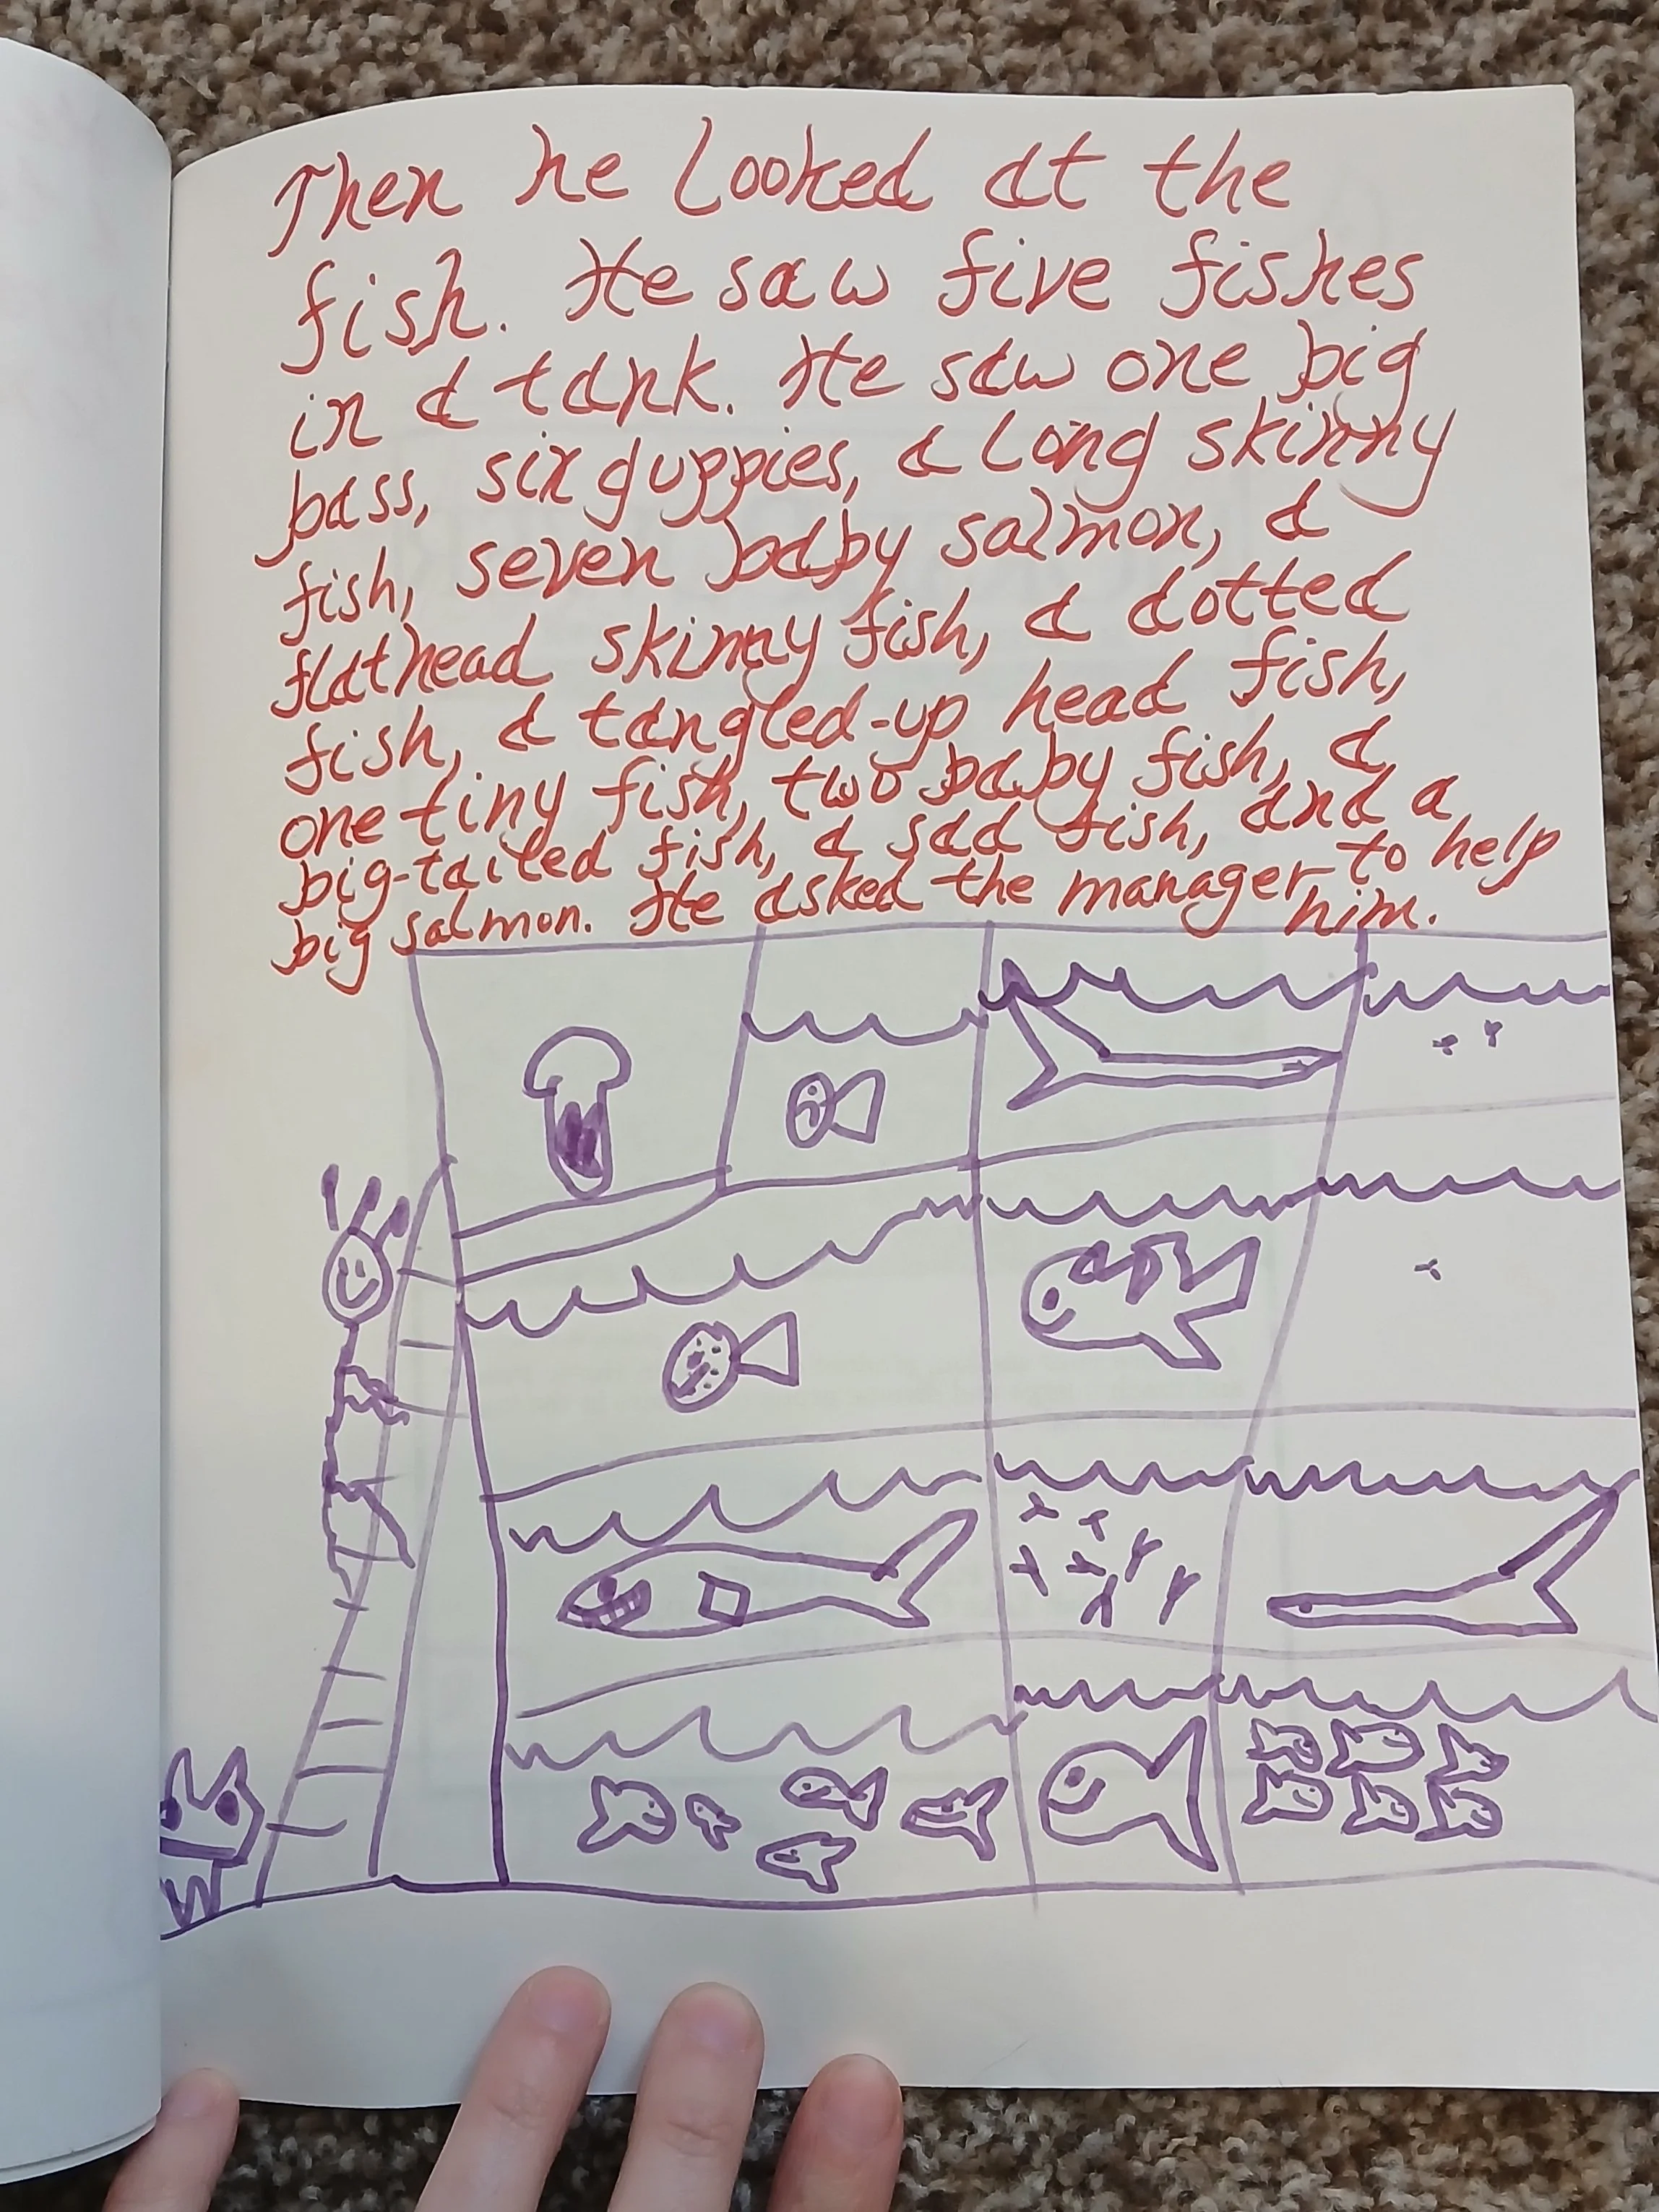 Then he looked at the
fish. He saw five fishes
in a tank. He saw one big
bass, six guppies, a long skinny
fish, seven baby salmon, a
flathead skinny fish, a dotted
fish, a tangled-up head fish,
one tiny fish, two baby fish, a
big-tailed fish, a sad fish, and a
big salmon. He asked the manager to help
him.